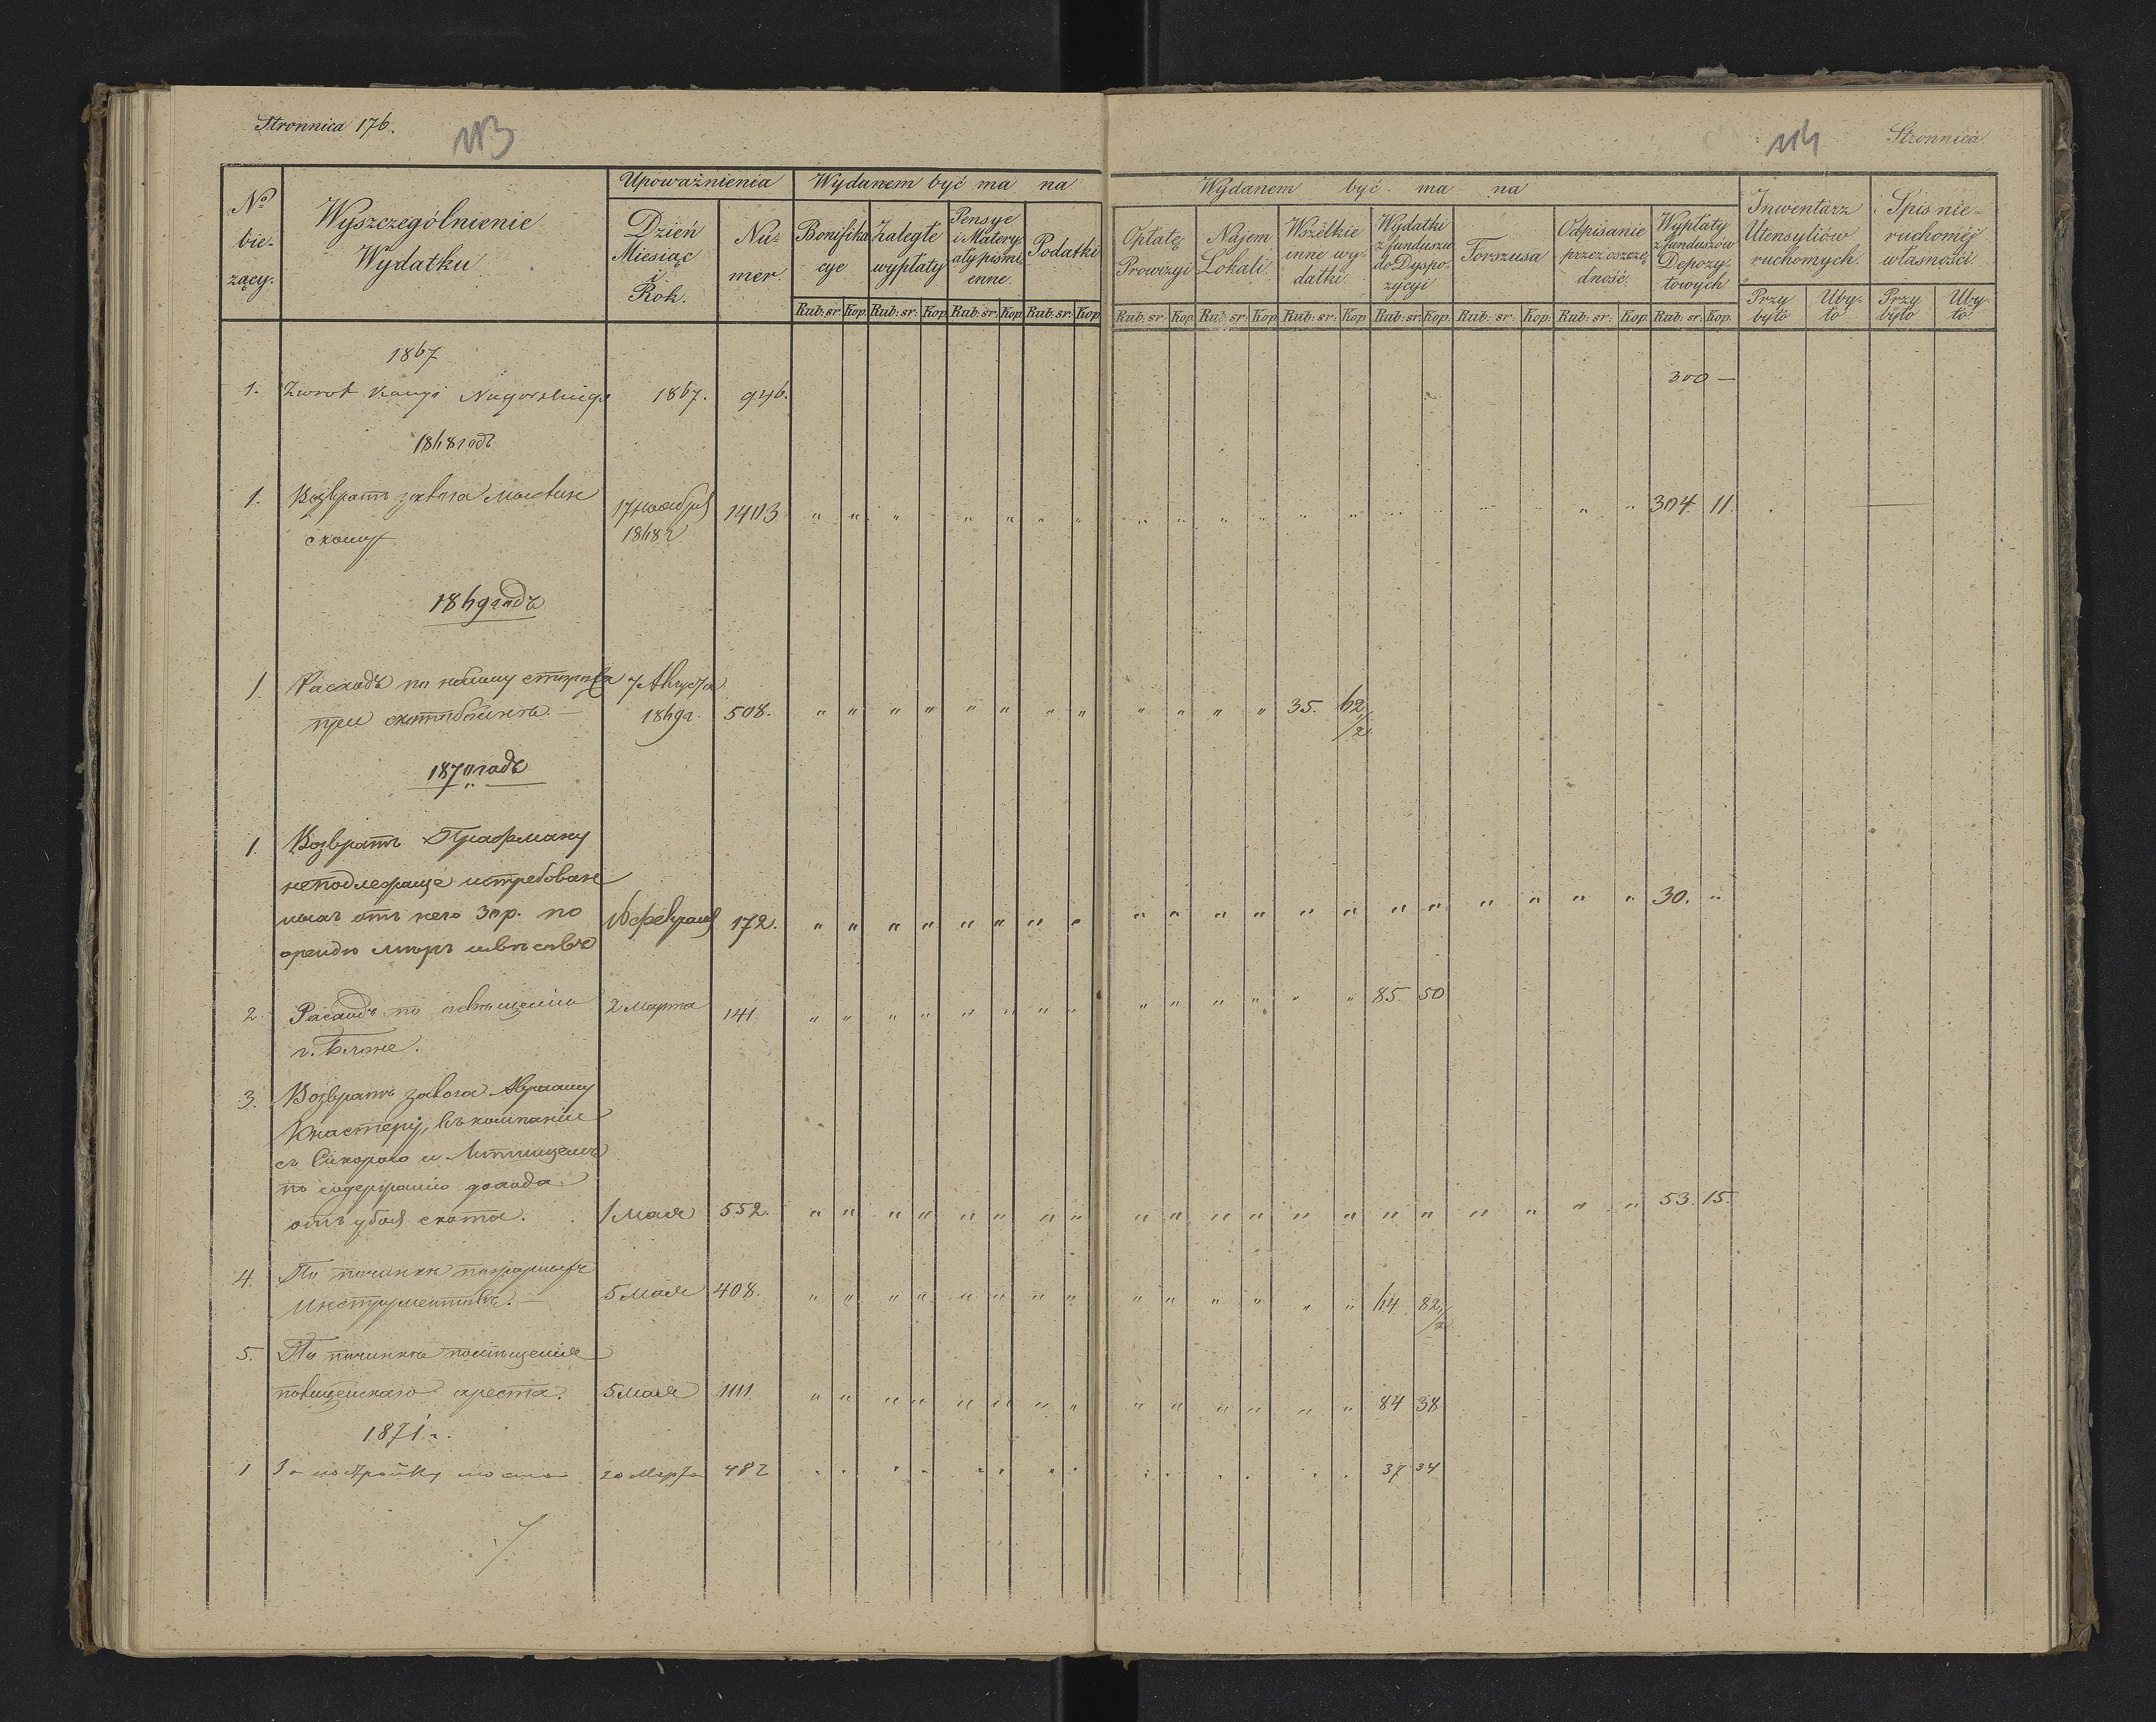 Stronnica 176.
113
114
Stronnica
№ bieżący.
Wyszczególnienie Wydatku
Upoważnienia
Dzień Miesiąc i Rok.
Numer.
Wydanem być ma na
Bonifikacye
Zaległe wypłaty
Pensye i Materyały piśmienne.
Podatki
Rub: sr: Kop. Rub: sr: Kop. Rub: sr: Kop. Rub: sr: Kop.
Wydanem być ma na
Opłatę Prowizyi
Najem Lokali
Wszelkie inne wydatki
Wydatki z funduszu do Dyspozycyi
Forszusa
Odpisanie przez oszczędność.
Wypłaty z funduszów Depozytowych
Rub: sr: Kop. Rub: sr: Kop. Rub: sr: Kop. Rub: sr: Kop. Rub: sr: Kop. Rub: sr: Kop. Rub: sr: Kop.
Inwentarz Utensyliów ruchomych.
Spis nieruchoméj własności
Przybyło Ubyło Przybyło Ubyło
1867
1. Zwrot Kaucyi 1867. 946. 300 —
1868 годъ
1. Возвратъ залога
скому 17 Ноября 1868 г 1403 304. 11.
1869 годъ
1 Расходъ по
при 7 Августа 1869 г. 508. 35. 62 1/2
1870 годъ
1. Возвратъ Графману
неподлежаще истребован
ныхъ отъ него 30 р. по
16 февраля 172. 30. "
2. Расходъ по освѣщенію
г. 2 Марта 141 85. 50
3. Возвратъ залога Абраму
Кнастеру, въ компаніи
съ и
по содержанію дохода
отъ убоя скота. 1 Мая 552. 53. 15.
4. По починкѣ пожарныхъ
инструментовъ. — 5 Мая 408. 64 82 1/2
5. По починкѣ помѣщенія
полицейскаго ареста. 5 Мая 1111 84 38
1871 г.
1 За постройку моста 20 Марта 482 37 34